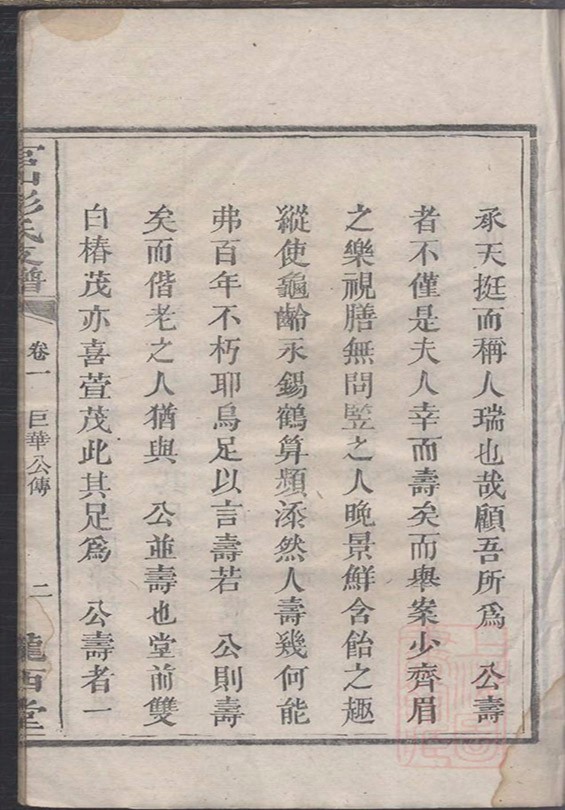 承天挺而稱人瑞也哉顧吾所爲　公壽
者不僅是夫人幸而壽矣而舉案少齊眉
之樂視膳無問豎之人晚景鮮含飴之趣
縱使龜齡永錫鶴算頻添然人壽幾何能
弗百年不朽耶烏足以言壽若　公則壽
矣而偕老之人猶與　公並壽也堂前雙
白椿茂亦喜萱茂此其足爲　公壽者一
彭氏支譜
卷一　巨華公傳　二